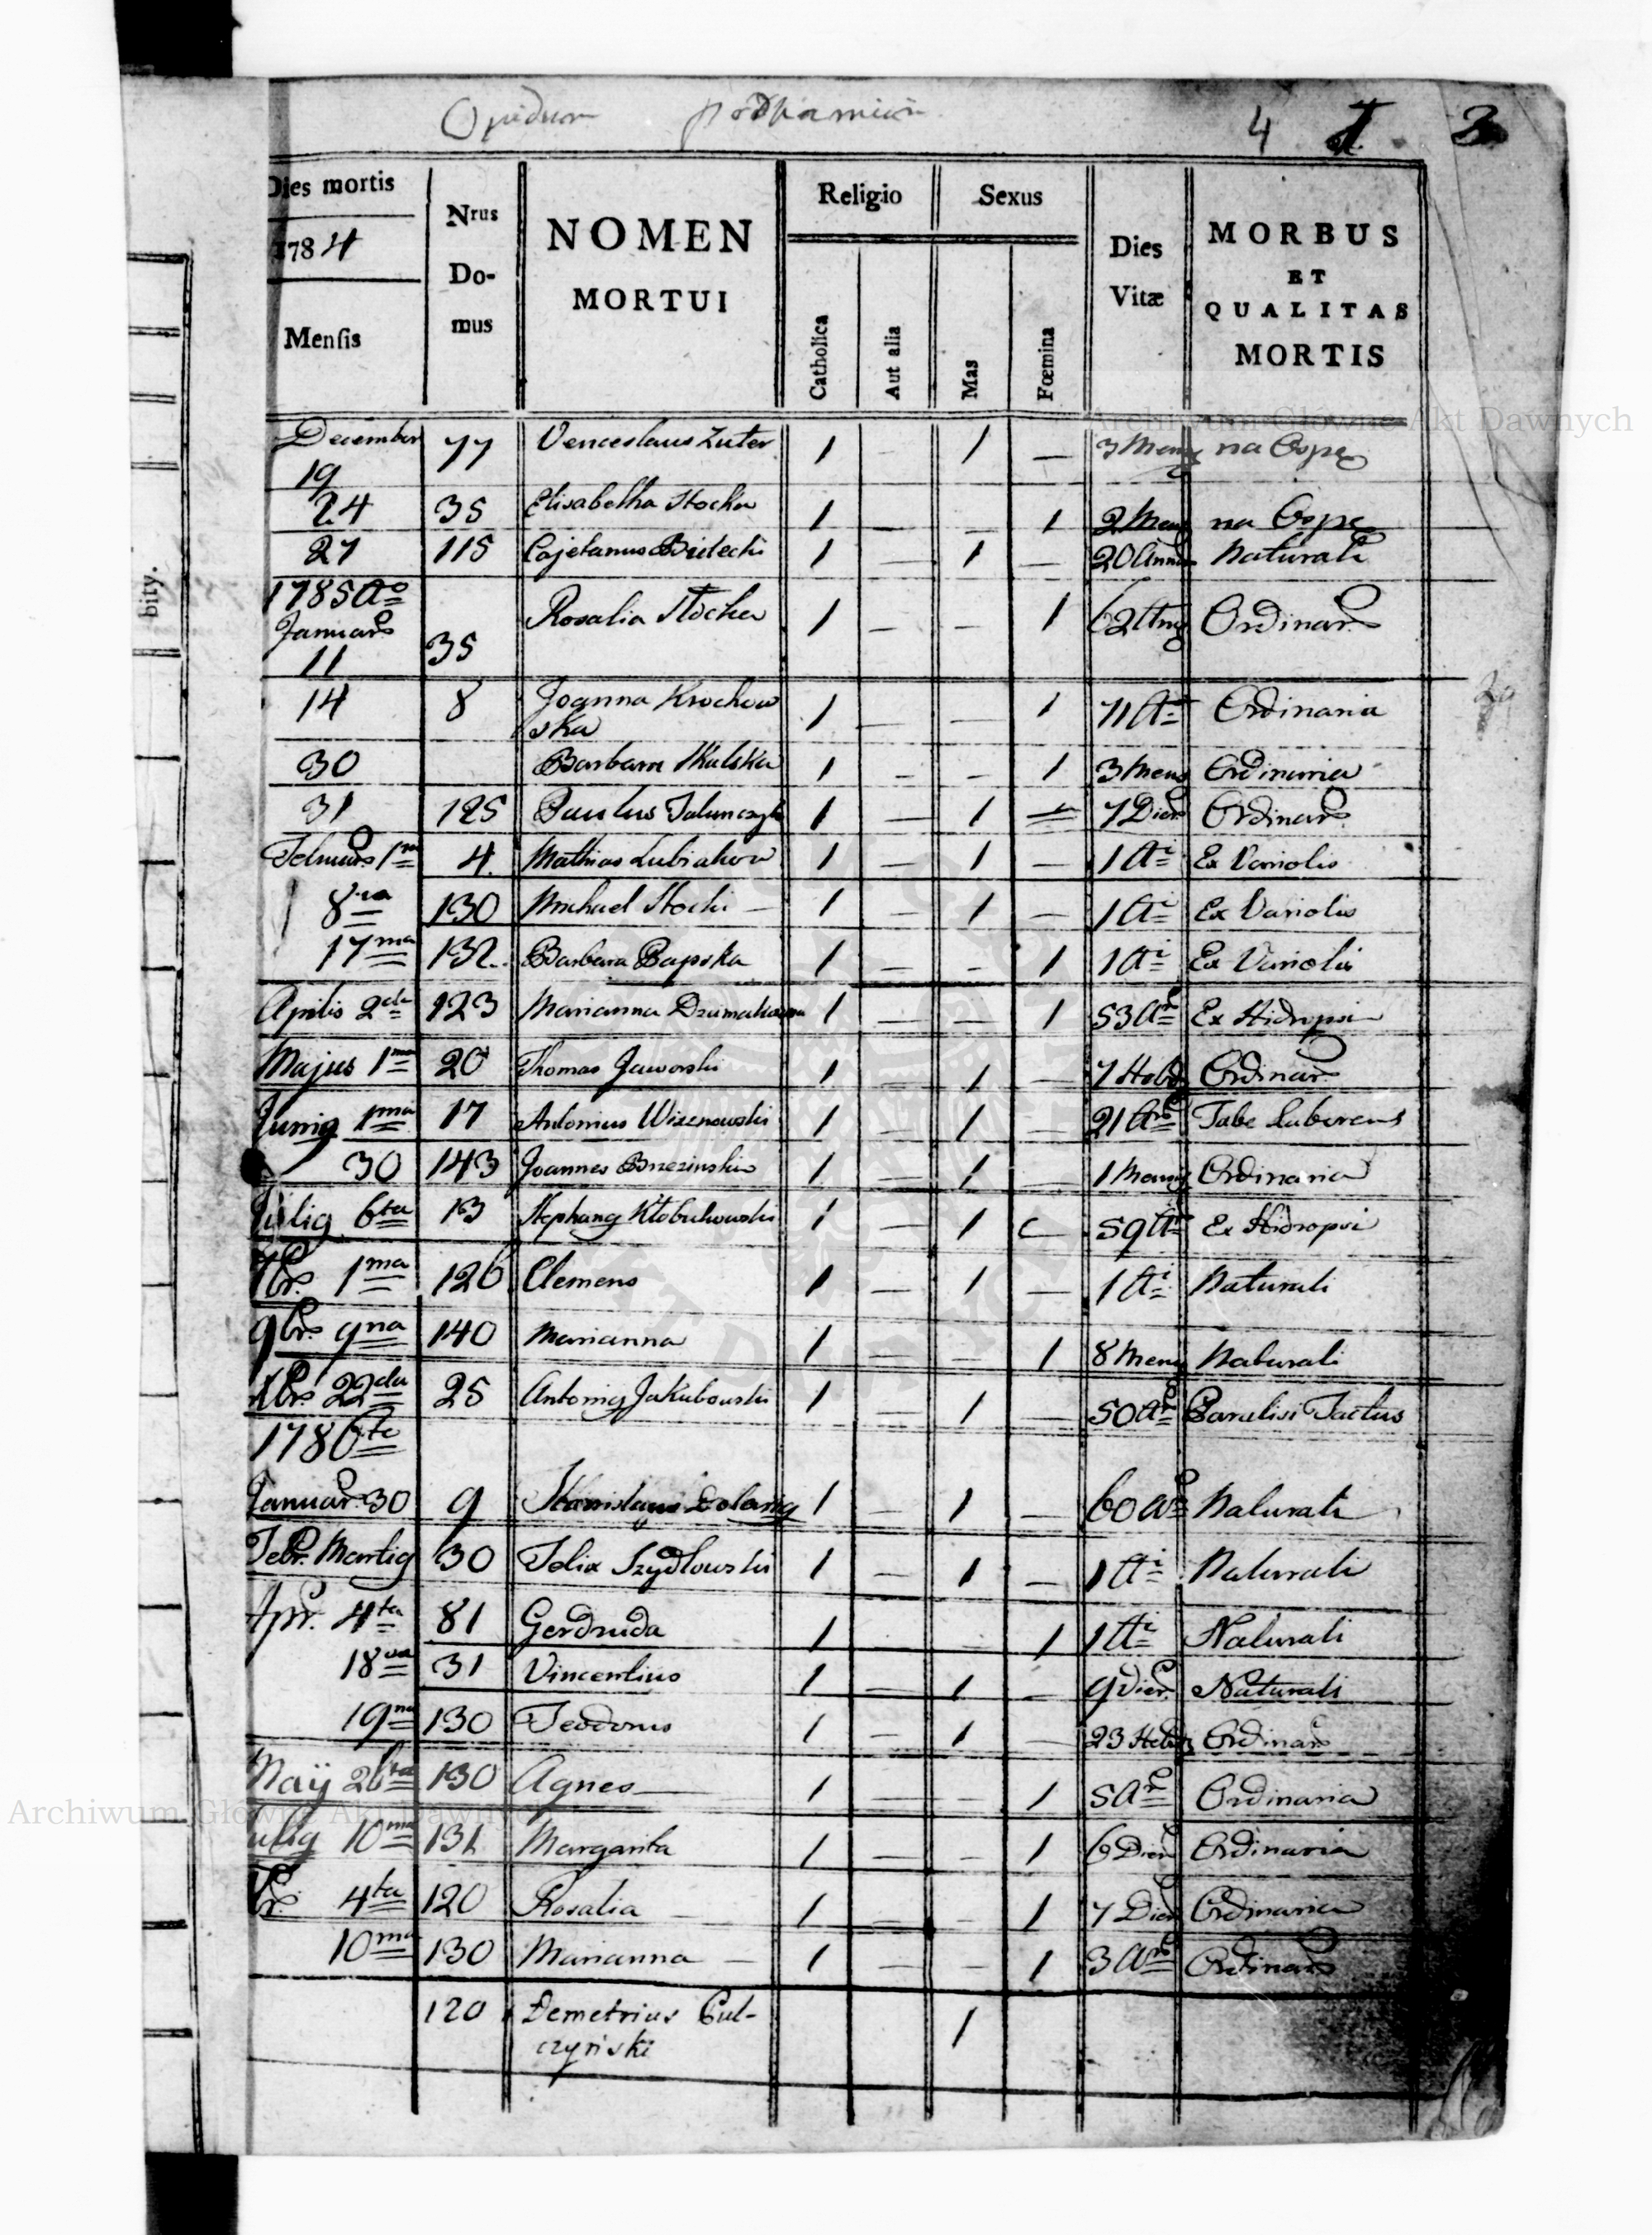 Opidum podkamien
4 3
Dies mortis
1784
Mensis
Nrus
Do-
mus
NOMEN
MORTUI
Religio
Catholica
Aut alia
Sexus
Mas
Fœmina
Dies
Vitæ
MORBUS
ET
QUALITAS
MORTIS
bity.
Archiwum Glowne Akt Dawnych
December 77 Venceslaus Luter 1 — 1 — 3 Mens na Ospę
19
24 35 Elisabetha Stocka 1 — — 1 2 Mens na Ospę
27 115 Cajetanus Bielecki 1 — 1 — 20 Anno Naturali
1785 Ao
Januar Rosalia Stocka 1 — — 1 62 Ordinar
11 35
14 8 Joanna Krochow 1 — — 1 71 A Ordinaria
ska
30 Barbara Skalska 1 — — 1 3 Mens Ordinaria
31 125 Paulus 1 — 1 — 7 Dier Ordinar
Februar 1ma 4. Mathias 1 — 1 — 1 Ai Ex Variolis
8va 130 Michael Stocki — 1 — 1 — 1 Ai Ex Variolis
17ma 132 Barbara Papska 1 — — 1 1 Ai Ex Variolis
Aprilis 2da 123 Marianna 1 — — 1 53 Ar Ex Hidropsi
Majus 1ma 20 Thomas Jaworski 1 — 1 — 7 Hebd Ordinar
Junig 1ma 17 Antonius Wisznowski 1 — 1 — 21 Ar Tabe Laborans
30 143 Joannes Brzezinski 1 — 1 — 1 Mens Ordinaria
Julig 6ta 13 Stephang Kłobukowski 1 — 1 — 59 Ar Ex Hidropsi
7br. 1ma 126 Clemens 1 — 1 — 1 Ai Naturali
9br. 9na 140 Marianna 1 — — 1 8 Mens Naturali
Xbr. 22da 25 Antonig Jakubowski 1 — 1 — 50 Ar Paralisi Tactus
1786to
Januar. 30 9 Stanislaus 1 — 1 — 60 Ar Naturali
Febr. Martig 30 Felix Szydlowski 1 — 1 — 1 Ai Naturali
Apr. 4ta 81 Gerdruda 1 1 1 Ai Naturali
18va 31 Vincentius 1 — 1 — 9 Dier. Naturali
19na 130 Teodorus 1 — 1 — 23 Hebd Ordinar
Maÿ 26ta 130 Agnes — 1 — — 1 5 Ar Ordinaria
Archiwum Glowne Akt Dawnych
ulig 10ma 131 Margarita 1 — — 1 6 Dier Ordinaria
br. 4ta 120 Rosalia — 1 — — 1 7 Dier Ordinaria
10ma 130 Marianna — 1 — — 1 3 Ar Ordinar
120 Demetrius Gul- 1
czyński